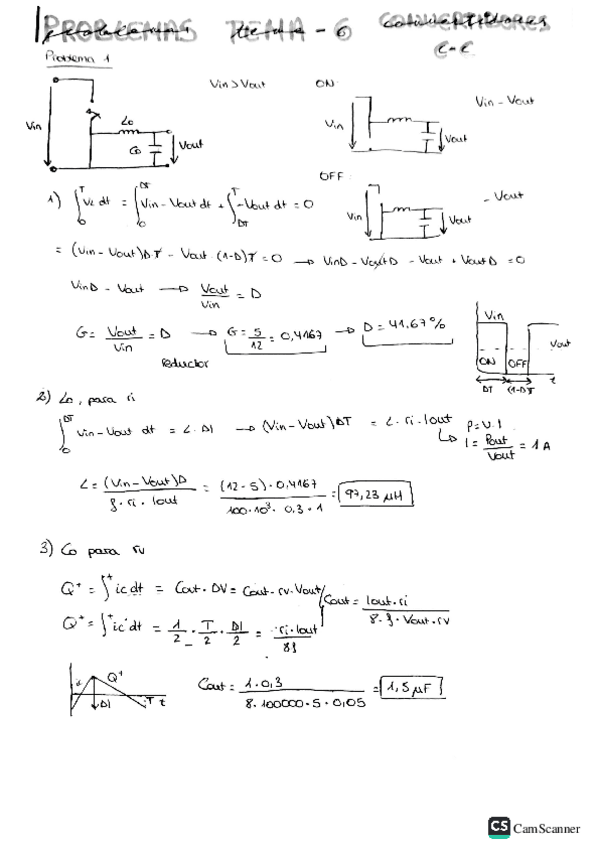 PROBLEMAS TEMA - 6 CONVERTIDORES
C-C
Problema 1
Vin > Vout ON:
Vin Lo Co Vout
Vin Vout Vin - Vout
OFF:
Vin Vout - Vout
1) ∫₀ᵀ VL dt = ∫₀ᴰᵀ Vin - Vout dt + ∫_DT^T -Vout dt = 0
= (Vin - Vout) D·T - Vout · (1-D)T = 0 → VinD - VoutD - Vout + VoutD = 0
VinD - Vout → Vout/Vin = D
G = Vout/Vin = D → G = 5/12 = 0,4167 → D = 41,67%
reductor
Vin Vout ON OFF t DT (1-D)T
2) Lo, para ri
∫₀ᴰᵀ Vin - Vout dt = L·DI → (Vin - Vout) DT = L·ri·Iout
P = V·I
↳ I = Pout/Vout = 1A
L = (Vin - Vout)D / f·ri·Iout = (12-5)·0,4167 / 100·10³·0,3·1 = 97,23 μH
3) Co para rv
Q⁺ = ∫⁺ ic dt = Cout·DV = Cout·rv·Vout
Cout = Iout·ri / 8·f·Vout·rv
Q⁺ = ∫⁺ ic dt = 1/2 · T/2 · DI/2 = ri·Iout / 8f
Q⁺ DI T t
Cout = 1·0,3 / 8·100000·5·0,05 = 1,5 μF
CS CamScanner